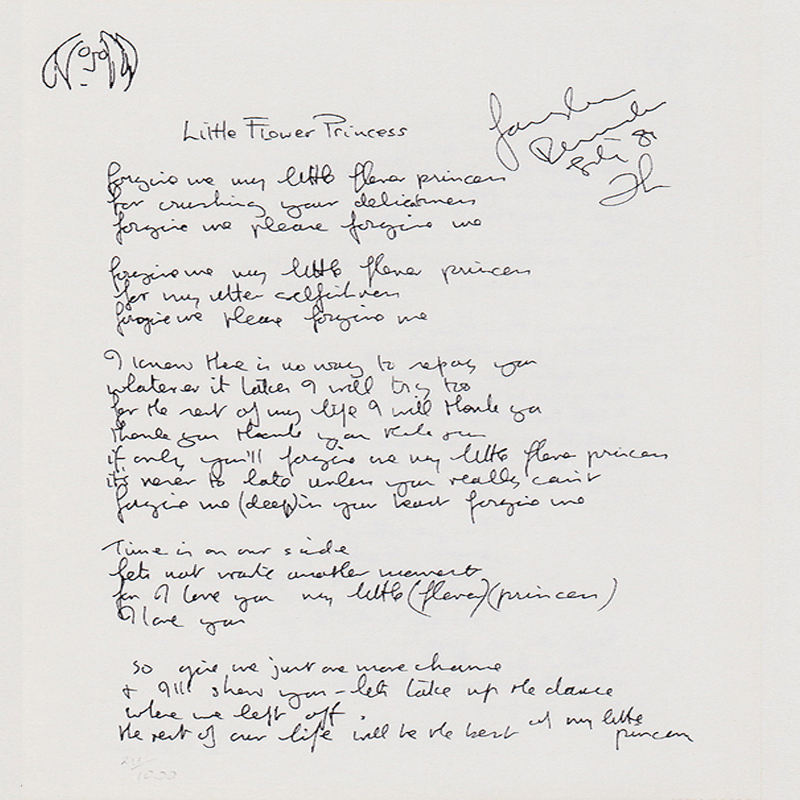 Little Flower Princess
Bermuda
forgive me my little flower princess
for crushing your delicatness
forgive me please forgive me
forgive me my little flower princess
for my utter selfishness
forgive me please forgive me
I know there is no way to repay you
whatever it takes I will try too
for the rest of my life I will thank you
thank you thank you thank you
if only you'll forgive me my little flower princess
it's never to late unless you really can't
forgive me (deep) in your heart forgive me
Time is on our side
lets not waste another moment
for I love you my little (flower) (princess)
I love you
so give me just one more chance
+ I'll show you - lets take up the dance
where we left off.
the rest of our life will be the best of my little
princess
/1000